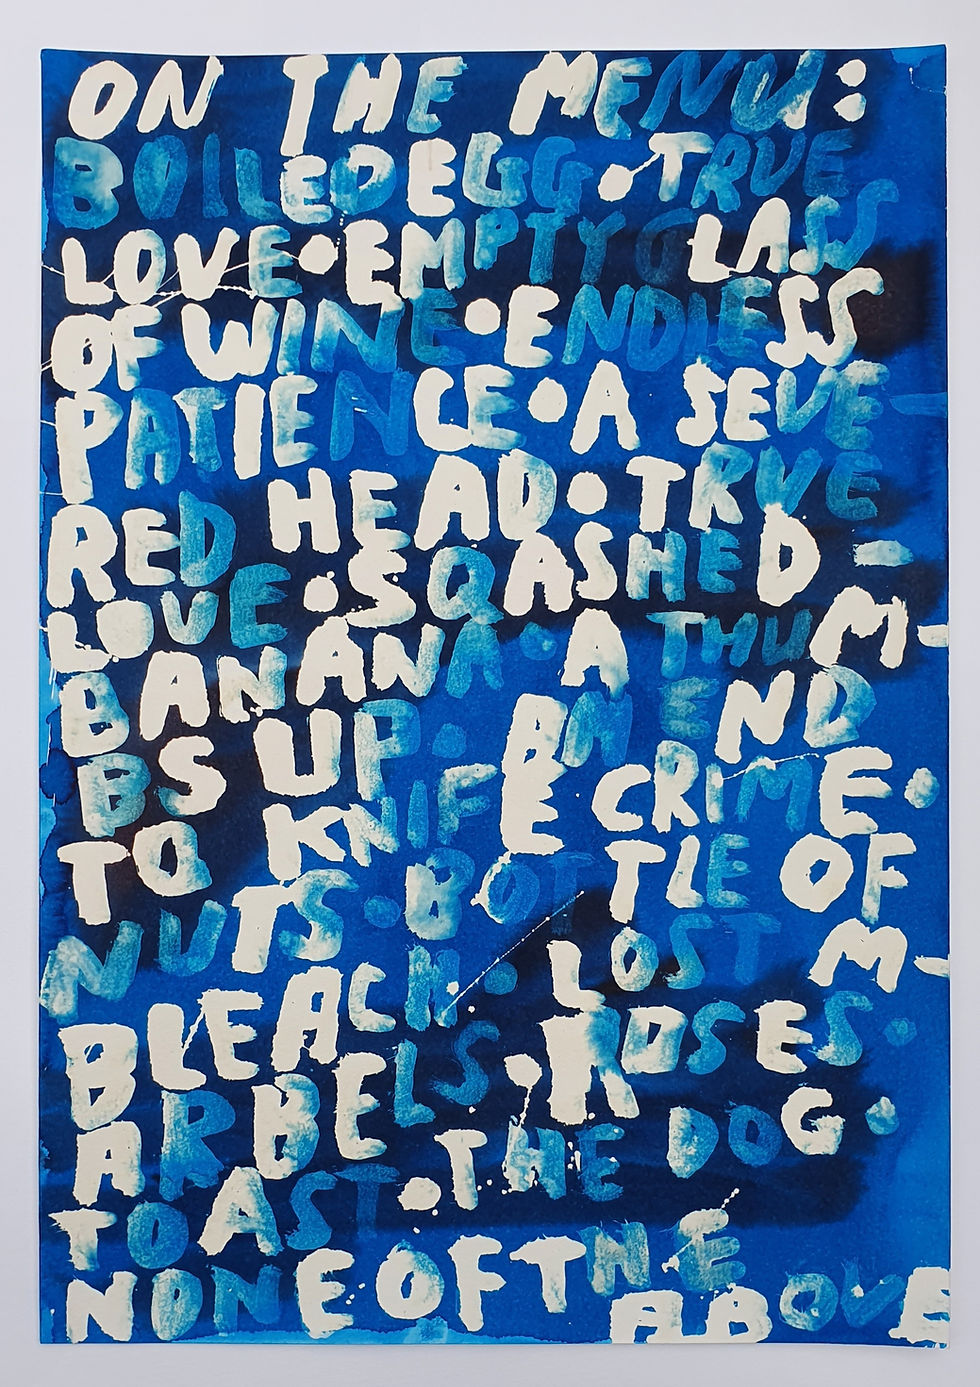 ON THE MENU:
BOILED EGG • TRUE
LOVE • EMPTY GLASS
OF WINE • ENDLESS
PATIENCE • A SEVE
RED HEAD • TRUE
LOVE • SQASHED -
BANANA • A THUM-
BS UP • AN END
TO KNIFE CRIME •
NUTS • A BOTTLE OF
BLEACH • LOST M-
ARBELS • ROSES •
TOAST • THE DOG •
NONE OF THE
ABOVE